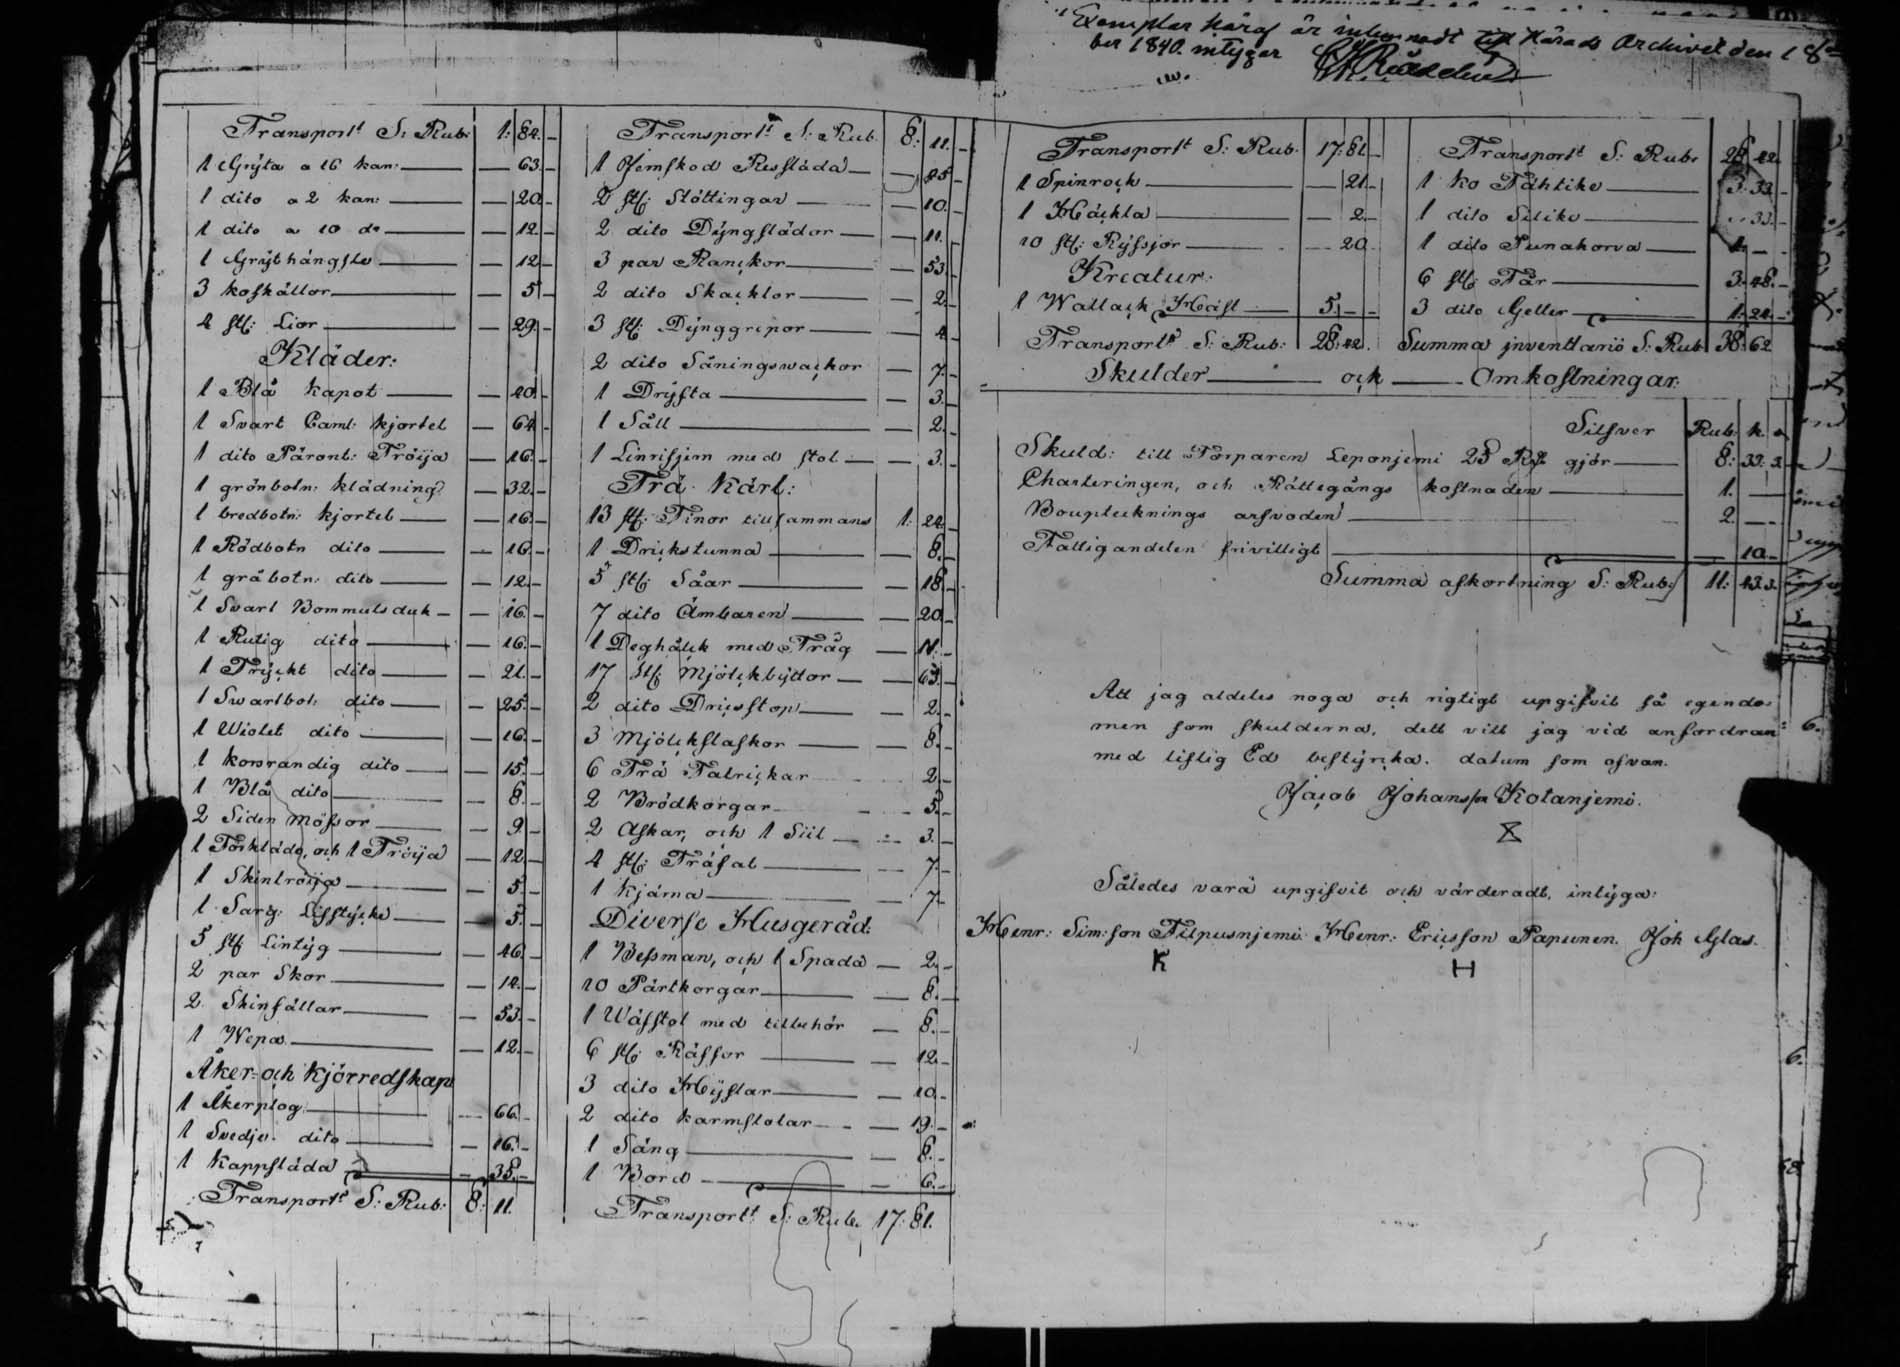 Exemplar häraf är inlemnadt till Härads Archivet den 18
ber 1840. intygar
Transportt S: Rub: 1: 84. –
1 Gryta a 16 kan: — 63. –
1 dito a 2 kan: — 20. –
1 dito a 10 do — 12. –
1 Grythängsle — 12 –
3 koskällor — 5 –
4 st: Lior — 29. –
Kläder:
1 Blå kapot — 40. –
1 Svart Caml: kjortel — 64 –
1 dito Päronb: Tröija — 16. –
1 grönbotn: klädning — 32. –
1 bredbotn: kjortel — 16. –
1 Rödbotn dito — 16. –
1 gråbotn: dito — 12. –
1 Svart Bommuls duk — 16. –
1 Rutig dito — 16. –
1 Tryckt dito — 21. –
1 Svartbot: dito — 25. –
1 Violet dito — 16. –
1 korsrandig dito — 15. –
1 Blå dito — 8. –
2 Siden Mössor — 9 –
1 Förkläde, och 1 Tröija — 12. –
1 Skintröija — 5. –
1 Sarg: Lifstycke — 5. –
5 st: Lintyg — 46. –
2 par Skor — 14. –
2 Skinfällar — 53. –
1 Wepa — 12. –
Åker- och kjörredskap
1 Åkerplog — 66. –
1 Svedje dito — 16. –
1 Kappsläda — 35. –
Transportt S: Rub: 8: 11.
Transportt S: Rub. 8: 11. –
1 Jernskod Ressläda — 85 –
2 st: Stöttingar — 10. –
2 dito Dyngslädor — 11. –
3 par Ranckor — 53. –
2 dito Skacklor — 2. –
3 st: Dynggrepor — 4 –
2 dito Såningswackor — 7. –
1 Drysta — 3. –
1 Såll — 2. –
1 Linrifjern med stol — 3. –
Trä Kärl:
13 st: Tinor tillsammans 1: 24. –
1 Drickstunna — 8. –
5 st: Såar — 18 –
7 dito Ämbaren — 20. –
1 Deghålck med Tråg — 11. –
17 st: Mjölckbyttor — 63. –
2 dito Dricsstop — 2. –
3 Mjölckflaskor — 8. –
6 Trä Talrickar — 2 –
2 Brödkorgar — 5. –
2 Askar, och 1 Siil — 3. –
4 st: Träfat — 7. –
1 Kjärna — 7 –
Diverse Husgeråd:
1 Bessman, och 1 Spada — 2. –
10 Pärtkorgar — 8. –
1 Wäfstol med tillbehör — 8. –
6 st: Räffsor — 12. –
3 dito Hyflar — 10. –
2 dito karmstolar — 19. –
1 Säng — 8. –
1 Bord — 6. –
Transportt S: Rub. 17: 81.
Transportt S: Rub. 17: 81 –
1 Spinrock — 21. –
1 Häckla — 2. –
10 st: Ryssjor — 20.
Kreatur:
1 Wallack Häst — 5. – –
Transportt S: Rub: 28: 42.
Transportt S: Rub: 28 42. –
1 ko Tähtike — 3: 33. –
1 dito Sitike — 33. –
1 dito Punakorva — –
6 st: Får — 3: 48. –
3 dito Getter — 1: 24. –
Summa jnventtario S: Rub 38: 62
Skulder — och — Omkostningar:
Silfver Rub: k.
Skuld: till Torparen Leponjemi 25 gjör — 8: 33. 3.
Charteringen, och Rättegångs kostnaden — 1. —
Boupteckning arfvoden — 2. —
Fattigandelen frivilligt — 10. –
Summa afkortning S: Rub: 11: 43. 3.
Att jag aldeles noga och rigtigt upgifvit så egendo-
men som skulderna, dett vill jag vid anfordran
med liflig Ed bestyrcka. datum som ofvan.
Jacob Johansson Kotanjemi.
Således vara upgifvit och värderadt, intyga:
Henr: Sim:son Filpusnjemi. Henr: Ericsson Papunen. Joh Glas.
K H